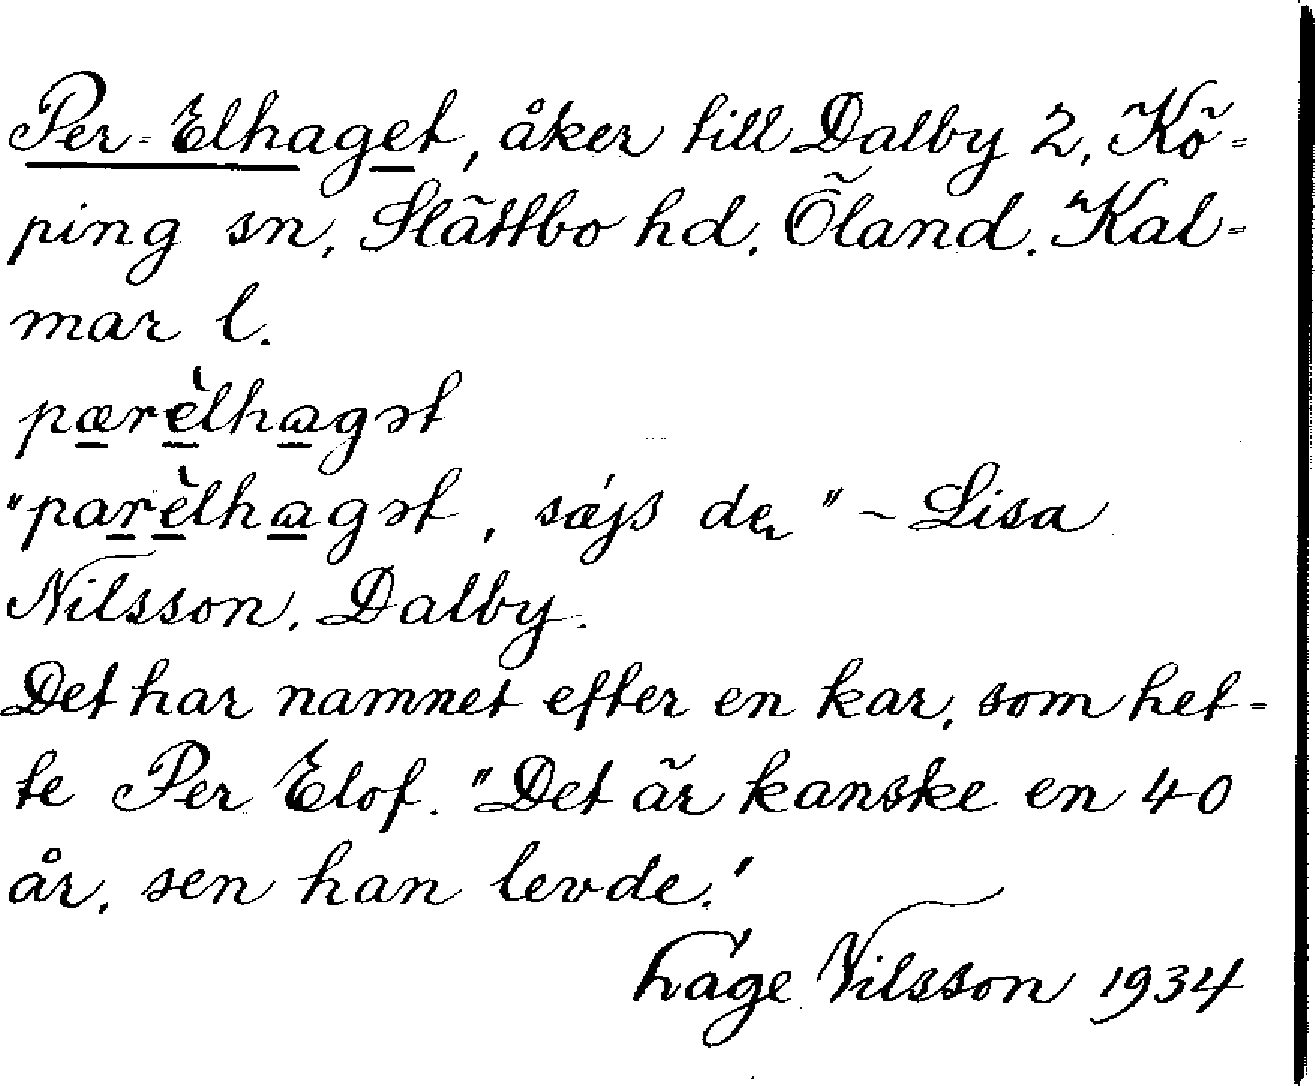 Per-Elhaget, åker till Dalby 2, Kö-
ping sn, Slättbo hd, Öland. Kal-
mar l.
pærèlhagət
"parèlhagət, säjs de" - Lisa
Nilsson, Dalby.
Det har namnet efter en kar, som het-
te Per Elof. "Det är kanske en 40
år, sen han levde."
Låge Nilsson 1934